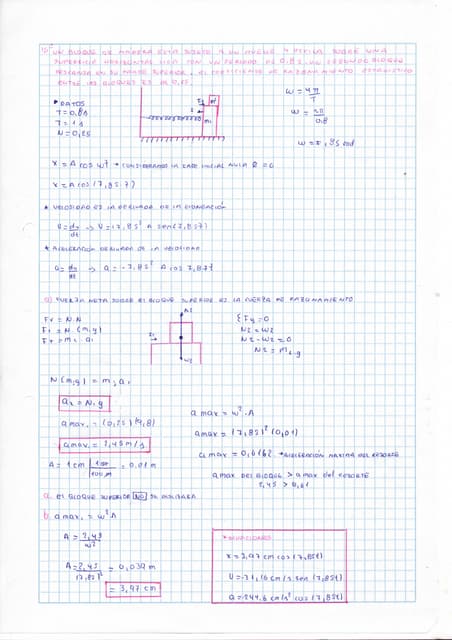 UN BLOQUE DE MADERA ESTA SUJETO A UN MUELLE Y OSCILA SOBRE UNA
SUPERFICIE HORIZONTAL LISA CON UN PERIODO DE 0,8s. UN SEGUNDO BLOQUE
DESCANSA EN SU PARTE SUPERIOR. EL COEFICIENTE DE ROZAMIENTO ESTATICO
ENTRE LOS BLOQUES ES DE 0,25.
* DATOS
T=0,8s
T=1s
N=0,25
m1
ω = 2π/T
ω = 2π/0.8
ω = 7,85 rad
X = A cos ωt → CONSIDERAMOS LA FASE INICIAL NULA
X = A cos (7,85 t)
* VELOCIDAD ES LA DERIVADA DE LA ELONGACIÓN
V = dx/dt → V = -7,85 A sen(7,85t)
* ACELERACIÓN DERIVADA DE LA VELOCIDAD
a = dv/dt → a = -7,85² A cos 7,85t
a) FUERZA NETA SOBRE EL BLOQUE SUPERIOR ES LA FUERZA DE ROZAMIENTO
Fr = N.N
Fr = N.(m2g)
Fr = m2 a2
N2
W2
ΣFy=0
N2=W2
N2-W2=0
N2=m2.g
N(m2g) = m2 a2
a2 = N.g
a max. = (0,25)(9,8)
a max. = 2,45 m/s
A = 1cm | 1m/100cm = 0.01 m
a max = ω².A
a max = (7,85)² (0,01)
a max = 0,6162 → ACELERACIÓN MAXIMA DEL RESORTE
a MAX DEL BLOQUE > a max DEL RESORTE
2,45 > 0,61
a. EL BLOQUE SUPERIOR NO SE DESLIZARA
b. a max. = ω²A
A = 2,45/ω²
A = 2,45/(7,85)² = 0,039 m
= 3,97 cm
* ECUACIONES
X = 3,97 cm cos (7,85t)
V = -31,16 cm/s sen (7,85t)
a = -244.6 cm/s² cos (7,85t)